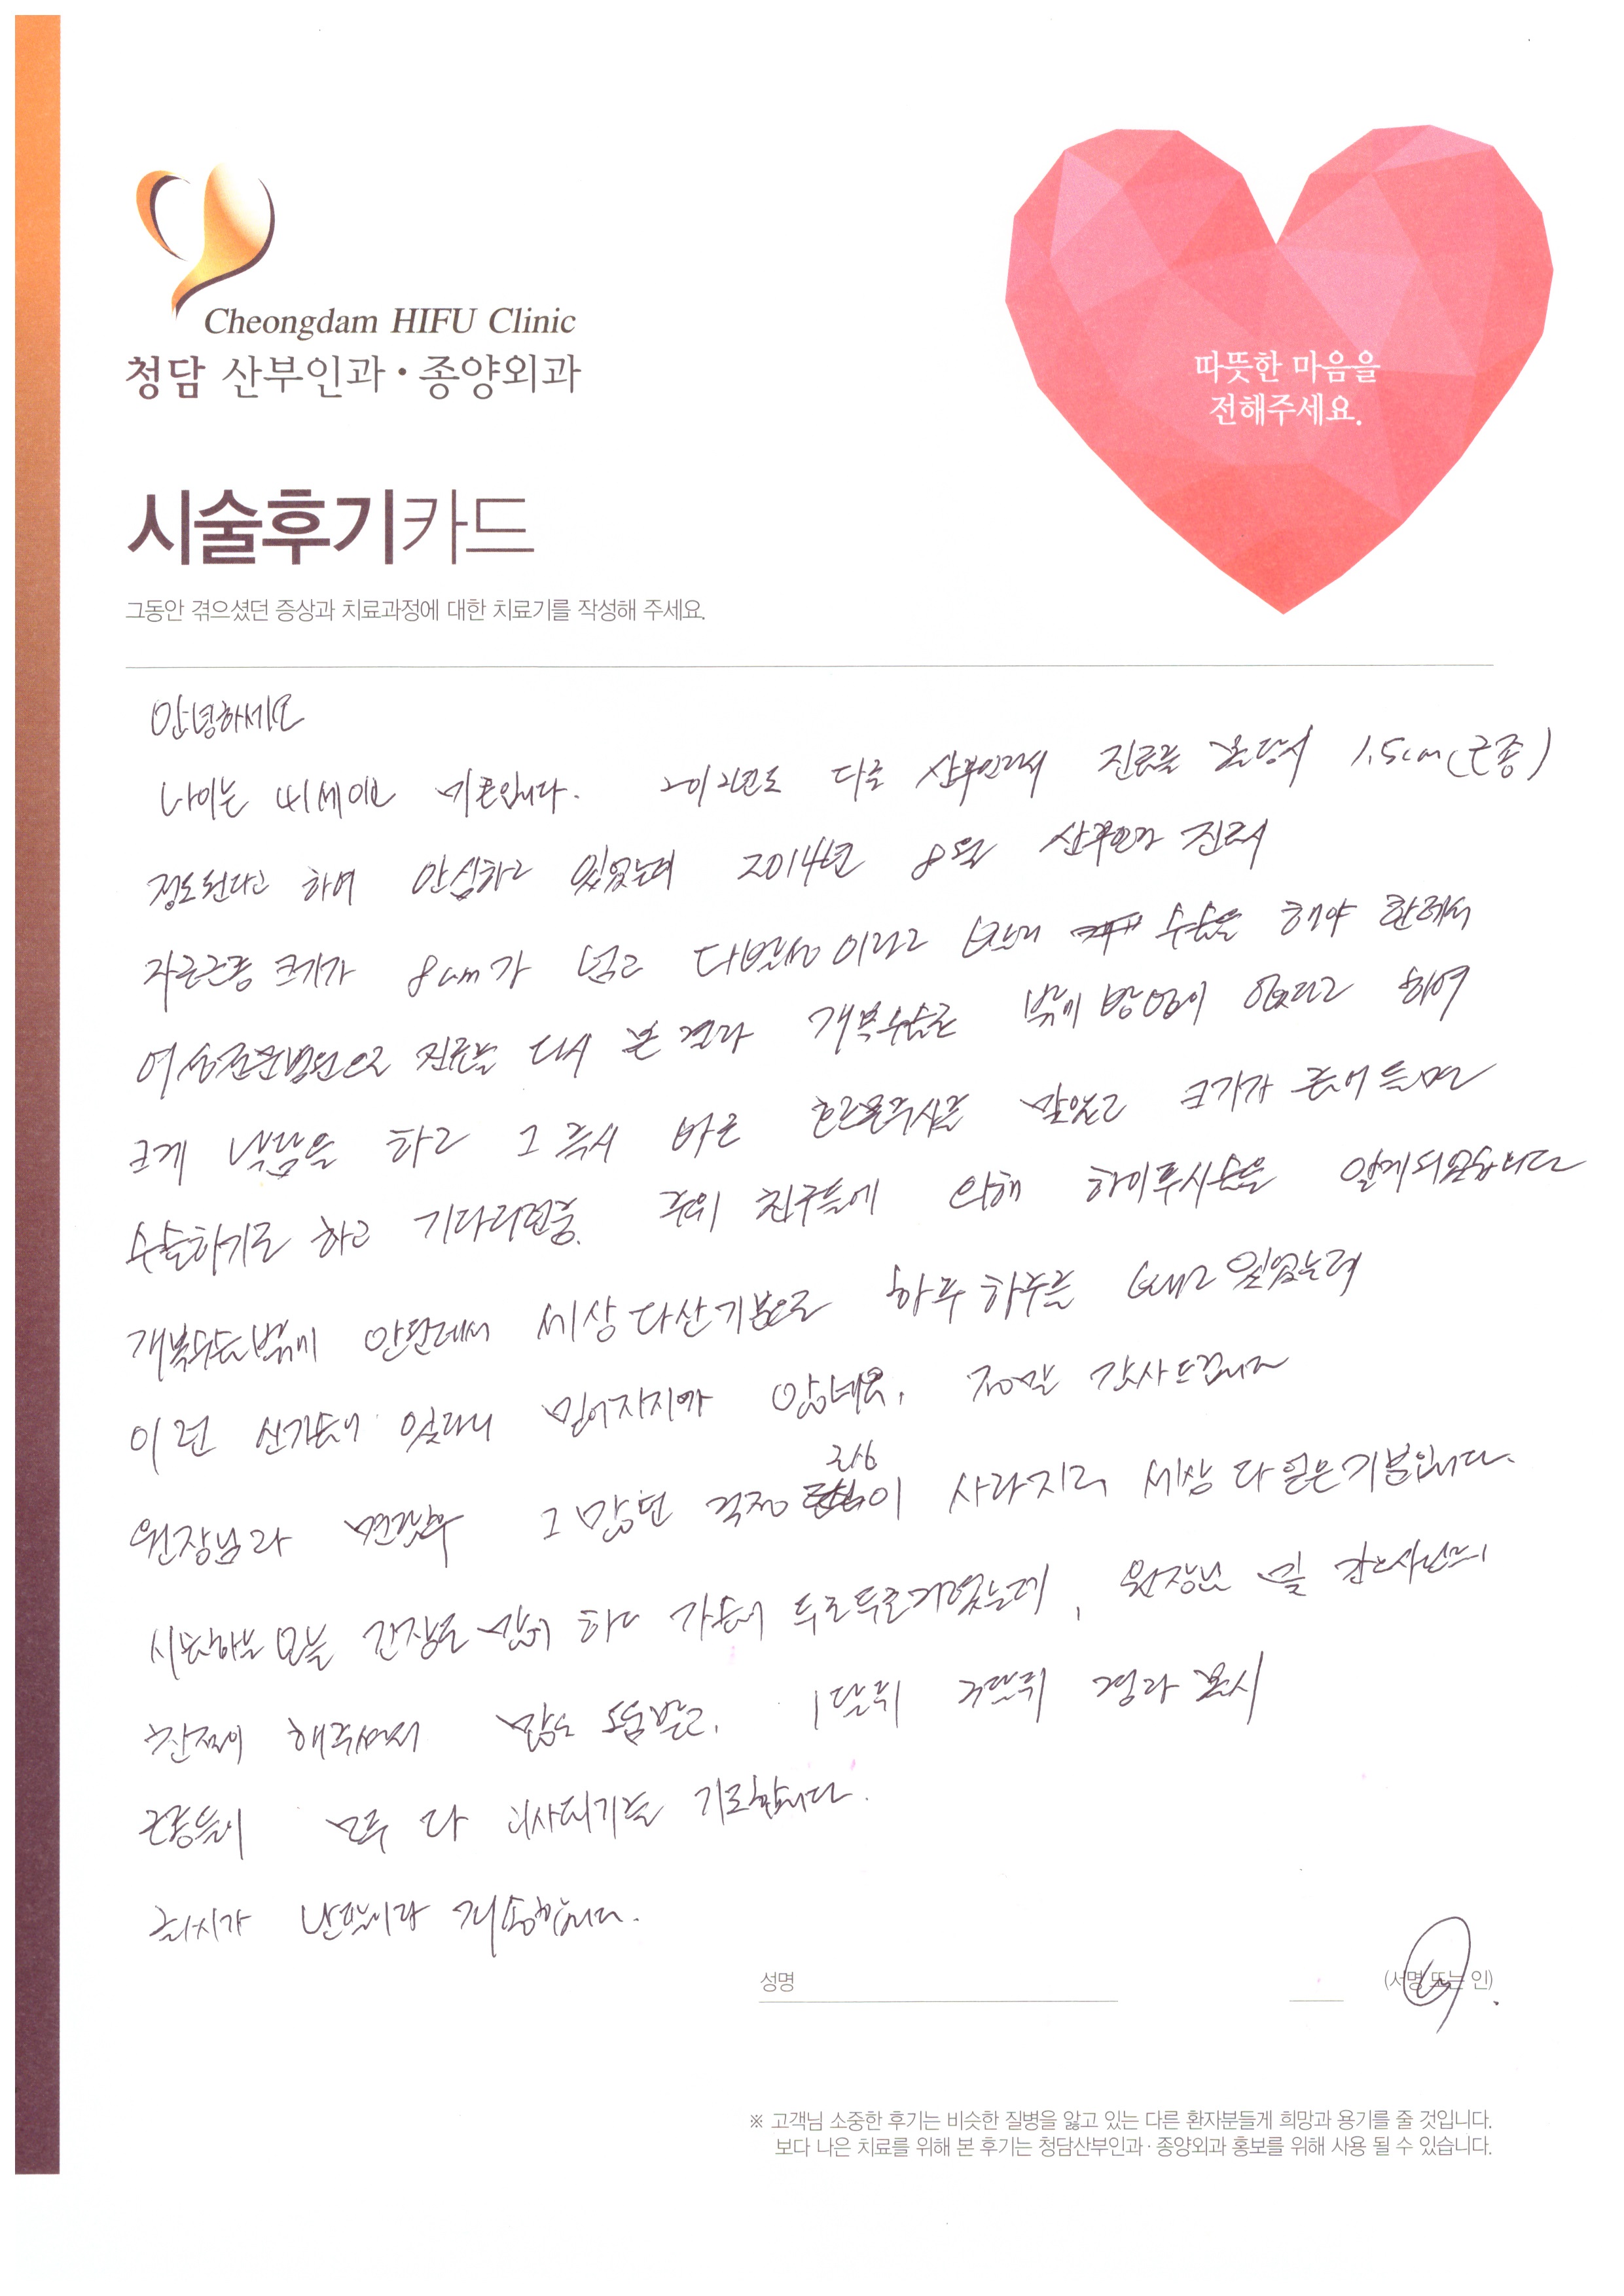 Cheongdam HIFU Clinic
청담 산부인과·종양외과
따뜻한 마음을
전해주세요.
시술후기카드
그동안 겪으셨던 증상과 치료과정에 대한 치료기를 작성해 주세요.
안녕하세요
나이는 41세이고 미혼입니다. 2012년도 다른 산부인과에서 진료를 볼당시 1.5cm(근종)
정도 된다고 하여 안심하고 있었는데 2014년 8월 산부인과 진료시
자궁근종 크기가 8cm가 넘고 다발성이라고 수술을 해야 한대서
여성전문병원으로 진료를 다시 본 결과 개복수술 밖에 방법이 없다고 하여
크게 낙담을 하고 그 즉시 바로 호르몬주사를 맞았고 크기가 줄어들면
수술하기로 하고 기다리던중. 주위 친구들에 의해 하이푸시술을 알게되었습니다
개복수술밖에 안된대서 세상 다산기분으로 하루하루를 보내고 있었는데
이런 신기술이 있다니 믿어지지가 않네요. 정말 감사드립니다
원장님과 면담후 그 많던 걱정 근심이 사라지고 세상 다 얻은기분입니다.
시술하는 오늘 긴장도 많이 하고 가슴이 두근두근거렸는데, 원장님 및 간호사님들이
친절히 해주셔서 많은 도움받고. 1달뒤 3달뒤 경과 볼시
근종들이 모두 다 괴사되기를 기도합니다.
글씨가 난필이라 죄송합니다.
성명
(서명 또는 인)
※ 고객님 소중한 후기는 비슷한 질병을 앓고 있는 다른 환자분들게 희망과 용기를 줄 것입니다.
보다 나은 치료를 위해 본 후기는 청담산부인과·종양외과 홍보를 위해 사용 될 수 있습니다.